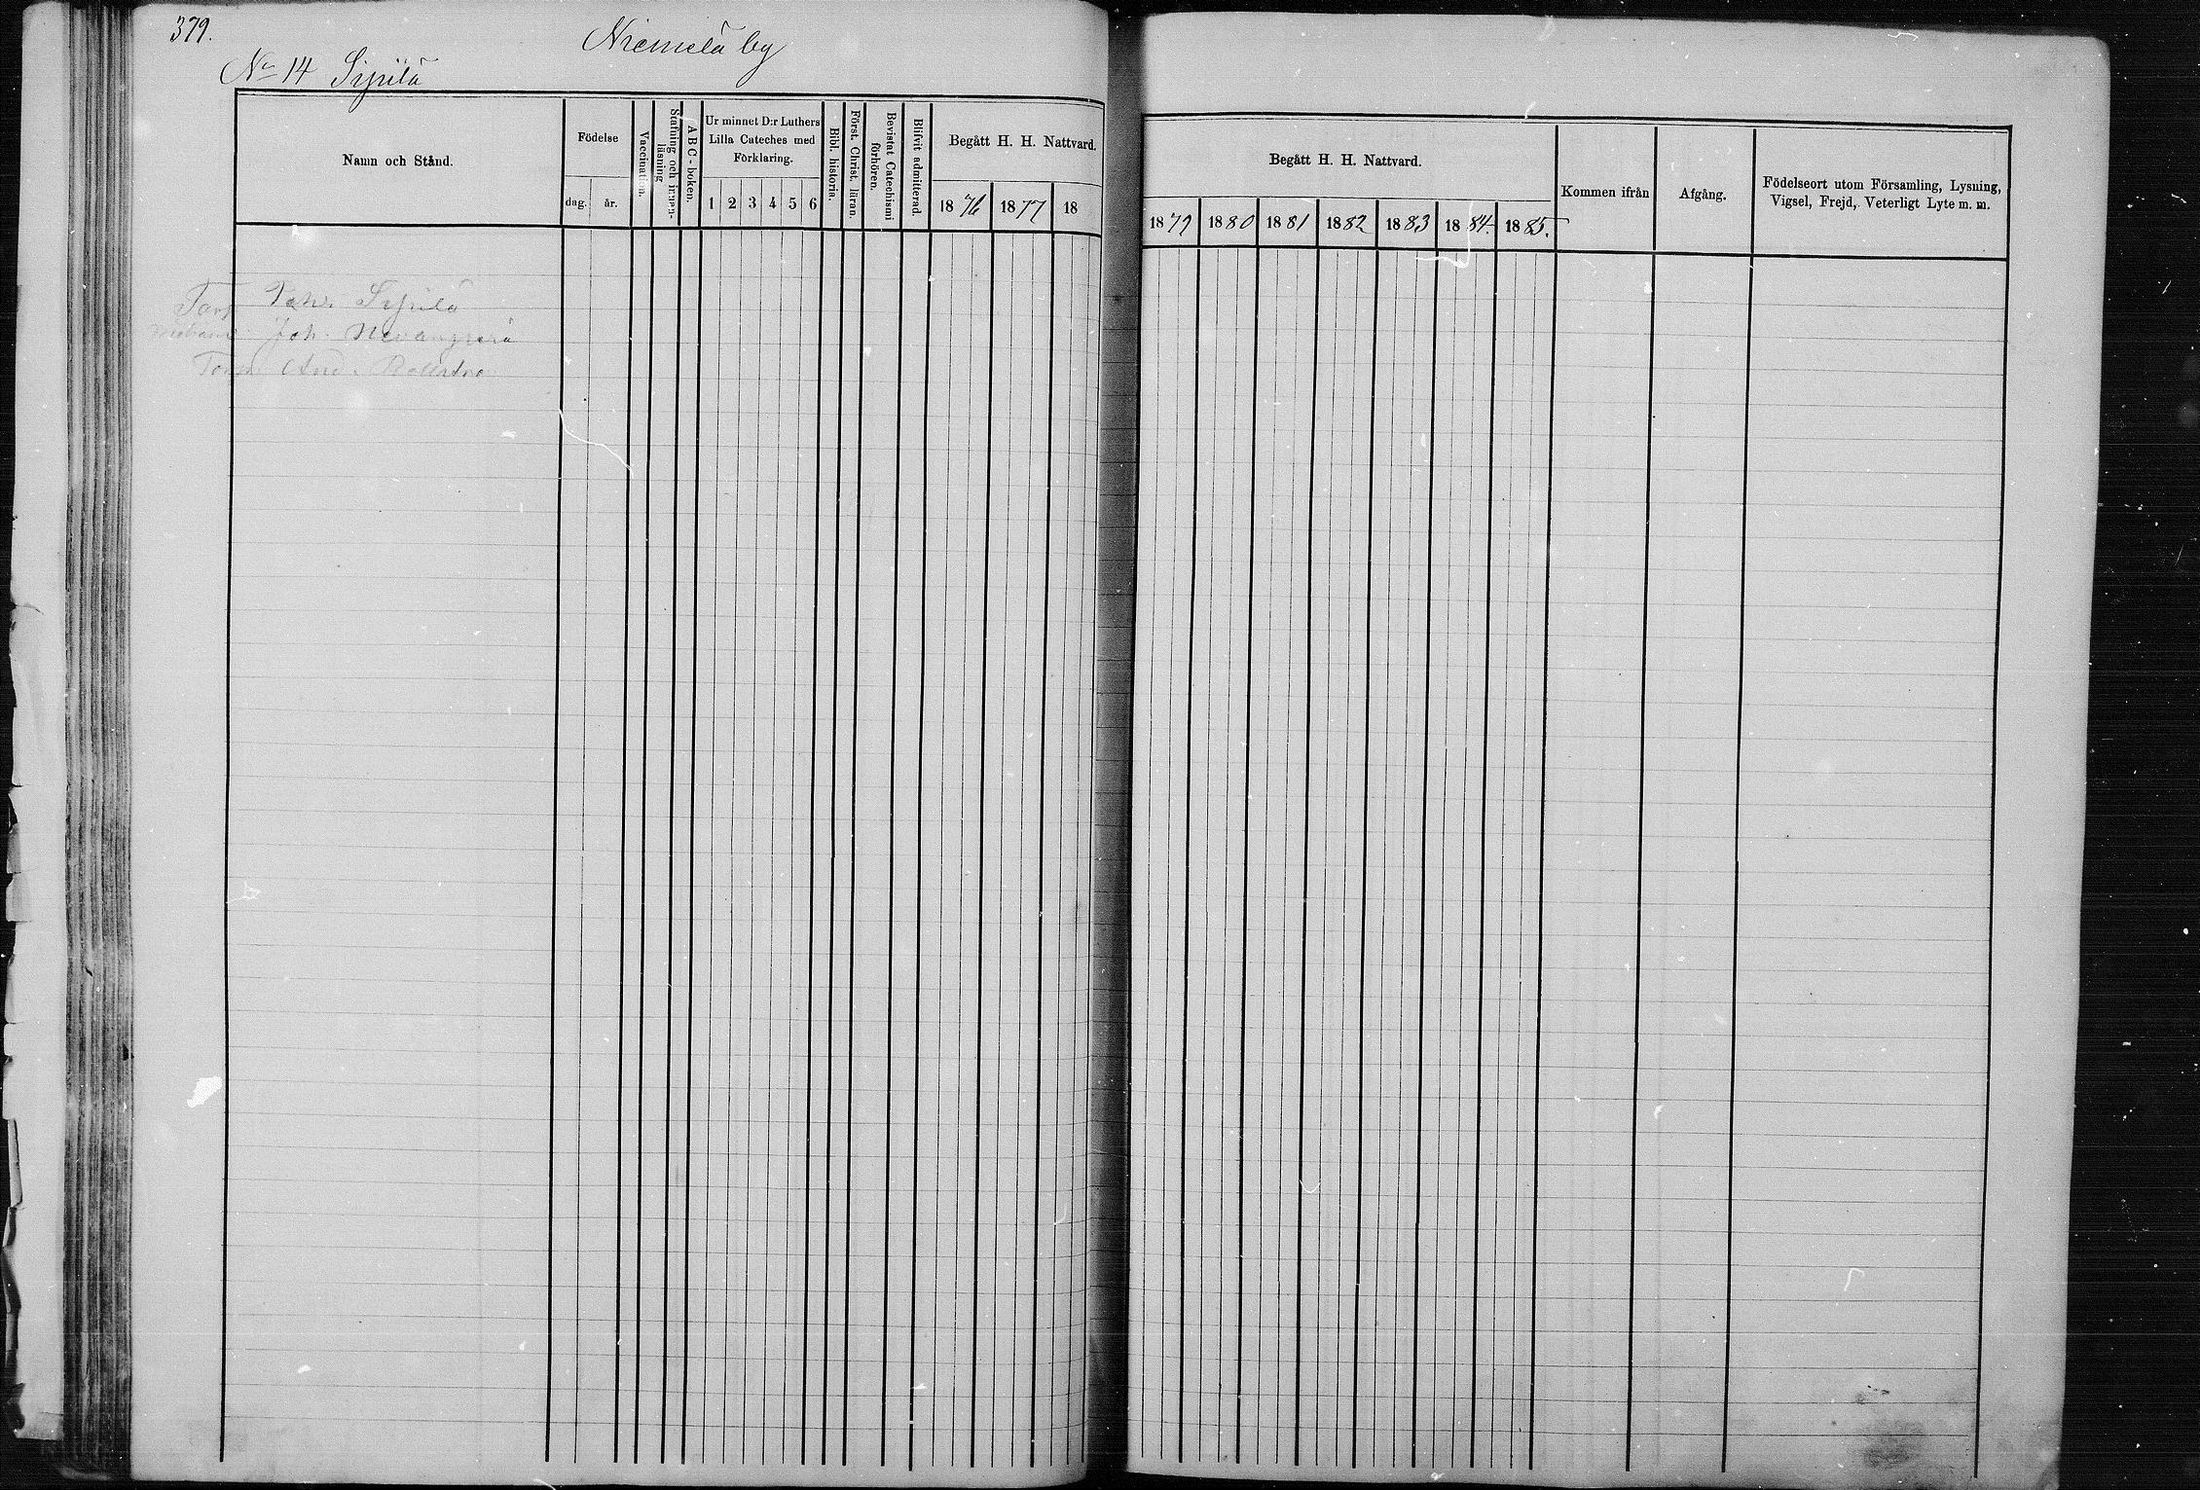 379.
Niemelä by
No 14 Sipilä
Namn och Stånd.
Födelse
dag. år.
Vaccination.
Stafning och innan-
läsning
ABC-boken.
Ur minnet D:r Luthers
Lilla Cateches med
Förklaring.
1 2 3 4 5 6
Bibl. historia.
Först. Christ. läran.
Bevistat Catechismi
förhören.
Blifvit admitterad.
Begått H. H. Nattvard.
1876 1877 18
Begått H. H. Nattvard.
1879 1880 1881 1882 1883 1884. 1885.
Kommen ifrån
Afgång.
Födelseort utom Församling, Lysning,
Vigsel, Frejd, Veterligt Lyte m. m.
Sipilä
Joh.